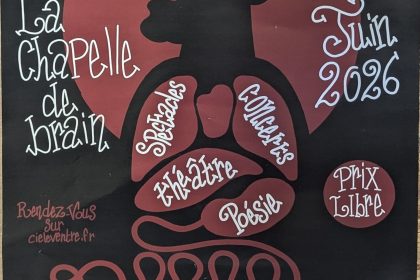 La
Chapelle
de
brain
Juin
2026
Spectacles
Concerts
théâtre
Poésie
Prix
Libre
Rendez-Vous
sur
cieleventre.fr